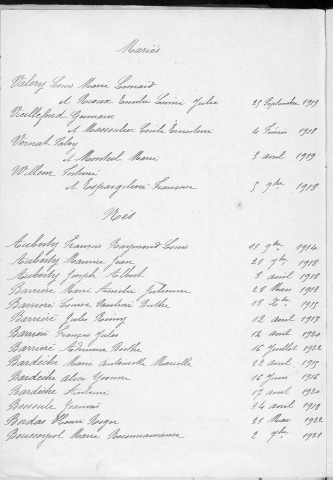 Mariés
Valery Louis Marie Léonard
et Roux Emilie Julie 25 Septembre 1919
Vieillefond Germain
et Massoulier Cécile Ernestine 4 Février 1918
Vernat Eloy
et Monteil Marie 3 avril 1919
Willem Antoine
et Espargilière Françoise 5 9bre 1918
Nés
Auberty François Raymond Louis 11 9bre 1914
Auberty Maurice Jean 21 9bre 1918
Auberty Joseph Albert 8 avril 1918
Barrière Marie 28 Mars 1918
Barriere Louise Berthe 18 1915
Barriere Jules Rémy 12 avril 1917
Barriere François Jules 12 avril 1920
Barriere Edienne Berthe 16 Juillet 1922
Bardèche Marie Antoinette Marcelle 22 avril 1915
Bardèche Alice Yvonne 16 Juin 1916
Bardèche Antoine 17 avril 1920
Bessoule Jeanne 24 avril 1919
Bordas Pierre Roger 21 Mai 1922
Bousseyrol Marie 2 7bre 1921